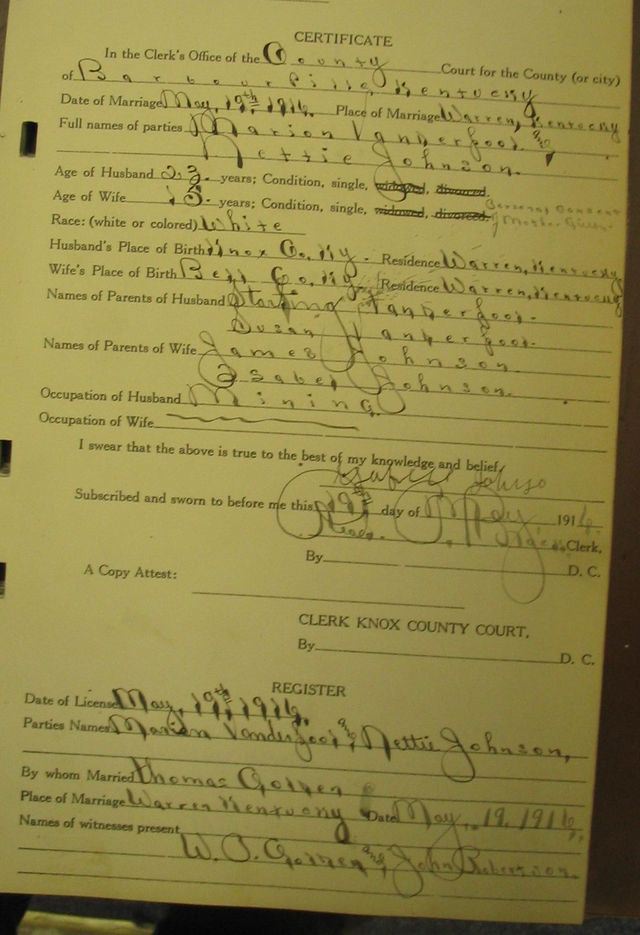 CERTIFICATE
In the Clerk's Office of the County Court for the County (or city)
of Barbourville, Kentucky
Date of Marriage May, 19th, 1916. Place of Marriage Warren, Kentucky
Full names of parties Marion Vanderfool. and
Nettie Johnson.
Age of Husband 23. years; Condition, single, widowed, divorced.
Age of Wife 15. years; Condition, single, widowed, divorced. Personal Consent
of Mother Given
Race: (white or colored) White
Husband's Place of Birth Knox Co, Ky. Residence Warren, Kentucky
Wife's Place of Birth Bell Co, Ky. Residence Warren, Kentucky
Names of Parents of Husband Sterling Vanderfool.
Susan Vanderfool.
Names of Parents of Wife James Johnson.
Isabel Johnson.
Occupation of Husband Mining.
Occupation of Wife
I swear that the above is true to the best of my knowledge and belief,
Johnso
Subscribed and sworn to before me this 19th day of May, 1916.
Clerk.
By D. C.
A Copy Attest:
CLERK KNOX COUNTY COURT,
By D. C.
REGISTER
Date of License May, 19th, 1916.
Parties Names Marion Vanderfool, and Nettie Johnson,
By whom Married Thomas Golden
Place of Marriage Warren Kentucky Date May, 19, 1916,
Names of witnesses present
W. J. Golden, and, John Roberson.